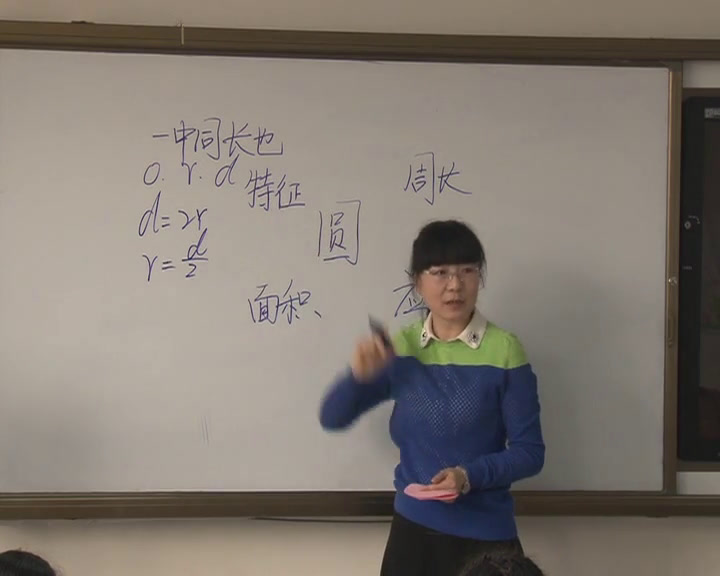 一中同长也
o. r. d
特征
周长
d=2r
圆
r=d/2
面积
应